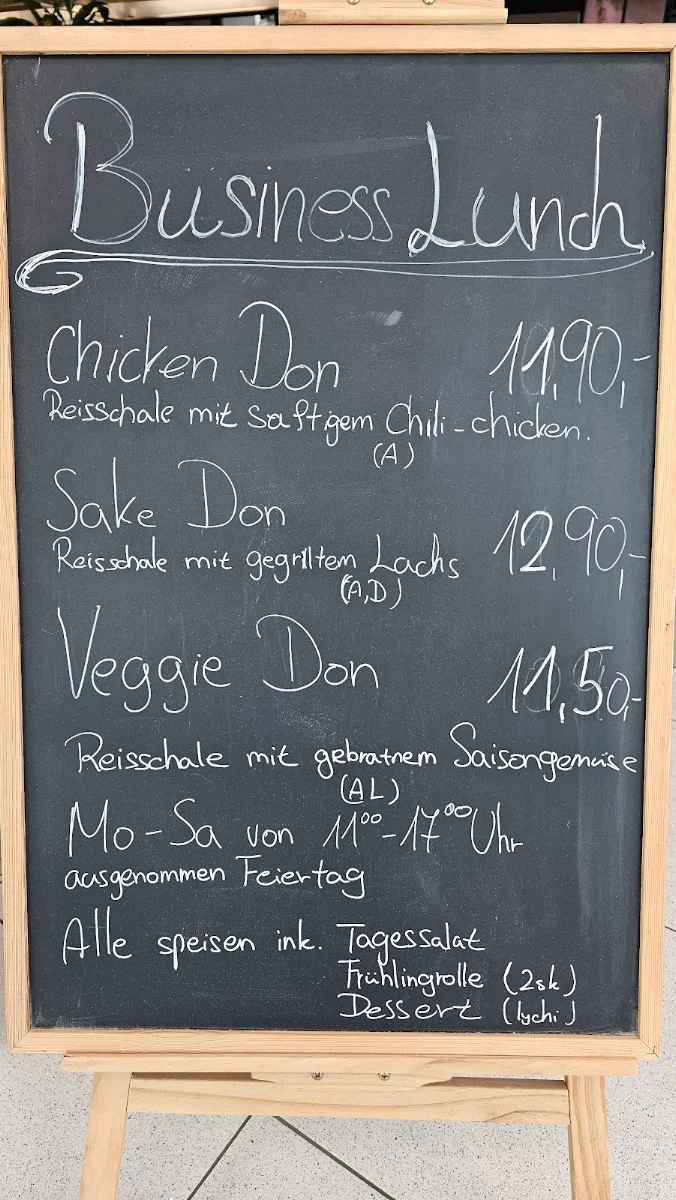 Business Lunch
Chicken Don 11,90,-
Reisschale mit saftigem Chili-chicken.
(A)
Sake Don 12,90,-
Reisschale mit gegrilltem Lachs
(A,D)
Veggie Don 11,50,-
Reisschale mit gebratnem Saisongemüse
(AL)
Mo-Sa von 11⁰⁰-17⁰⁰ Uhr
ausgenommen Feiertag
Alle speisen ink. Tagessalat
Frühlingrolle (2sk)
Dessert (lychi)